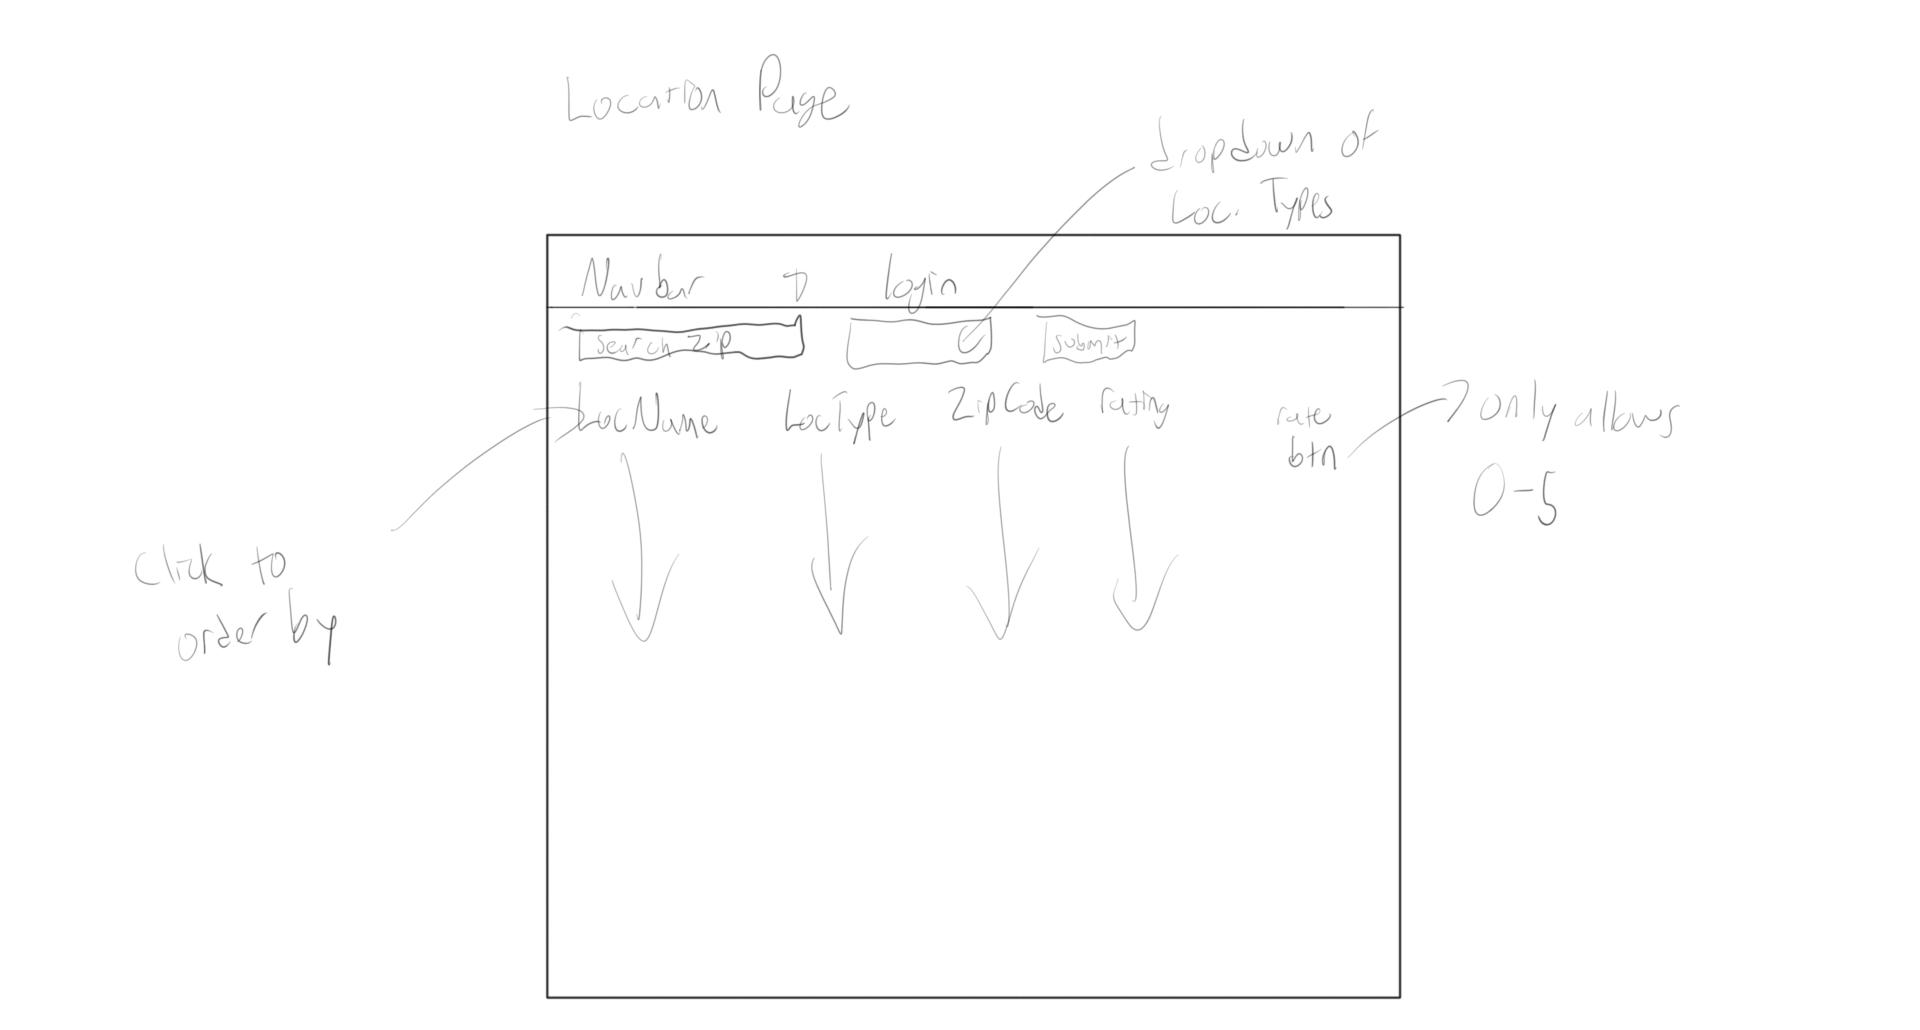 Location Page
dropdown of
Loc. Types
Navbar login
Search Zip
Submit
LocName LocType ZipCode rating
rate
btn
only allows
0-5
Click to
order by